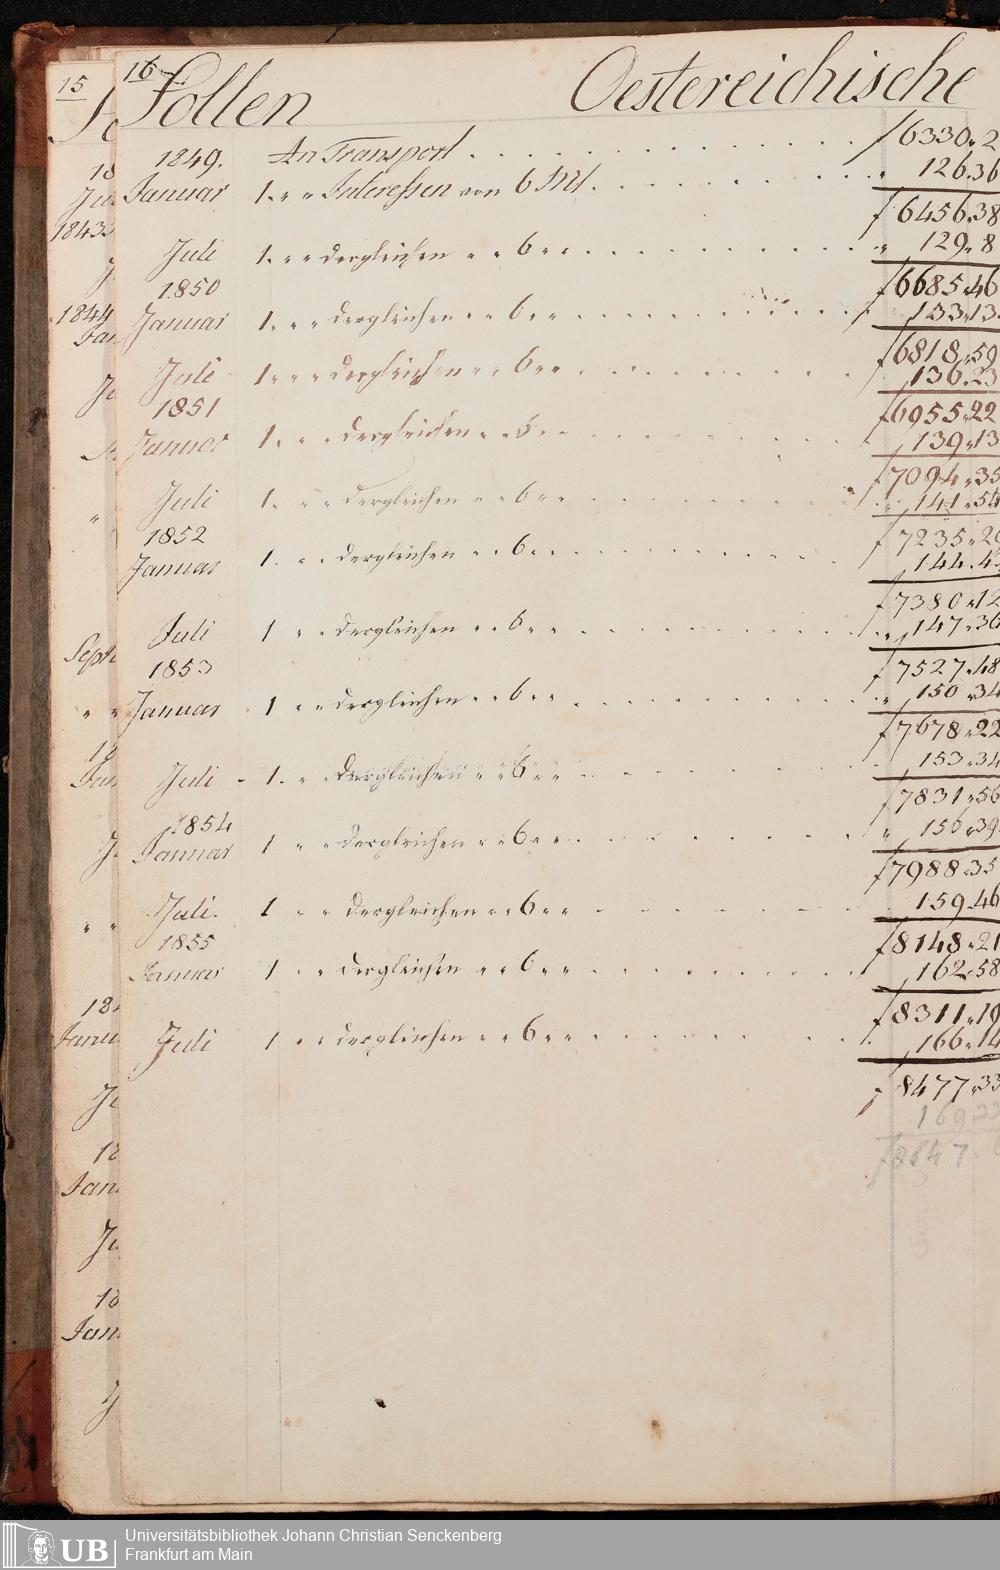 15
16
Sollen Oestereichische
1849. An Transport . . . . . . . . . . . . . . . f 6330.2
Januar 1. " " Interessen von 6 Mt. . . . . . . . . . . . . . " 126.36
f 6456.38
Juli 1. " " dergleichen " " 6 " " . . . . . . . . . . . . . " 129.8
1850 f 6685.46
Januar 1. " " dergleichen " " 6 " " . . . . . . . . . . . . . 133.13
f 6818.59
Juli 1. " " dergleichen " " 6 " " . . . . . . . . . . . . . 136.23
1851 f 6955.22
Januar 1. " " dergleichen " " 6 " " . . . . . . . . . . . . . 139.13
f 7094.35
Juli 1. " " dergleichen " " 6 " " . . . . . . . . . . . . . " 141.54
1852 f 7235.29
Januar 1. " " dergleichen " " 6 " " . . . . . . . . . . . . . 144.43
f 7380.12
Juli 1 " " dergleichen " " 6 " " . . . . . . . . . . . . . " 147.36
1853 f 7527.48
Januar 1 " " dergleichen " " 6 " " . . . . . . . . . . . . . " 150.34
f 7678.22
Juli 1. " " dergleichen " " 6 " " . . . . . . . . . . . . . 153.34
f 7831.56
1854 " 156.39
Januar 1 " " dergleichen " " 6 " " . . . . . . . . . . . . .
f 7988.35
Juli. 1 " " dergleichen " " 6 " " . . . . . . . . . . . . . 159.46
1855 f 8148.21
Januar 1 " " dergleichen " " 6 " " . . . . . . . . . . . . . 162.58
f 8311.19
Juli 1 " " dergleichen " " 6 " " . . . . . . . . . . . . . 166.14
f 8477.33
169.33
f 8647.
1843
1844
Sept
UB Universitätsbibliothek Johann Christian Senckenberg
Frankfurt am Main